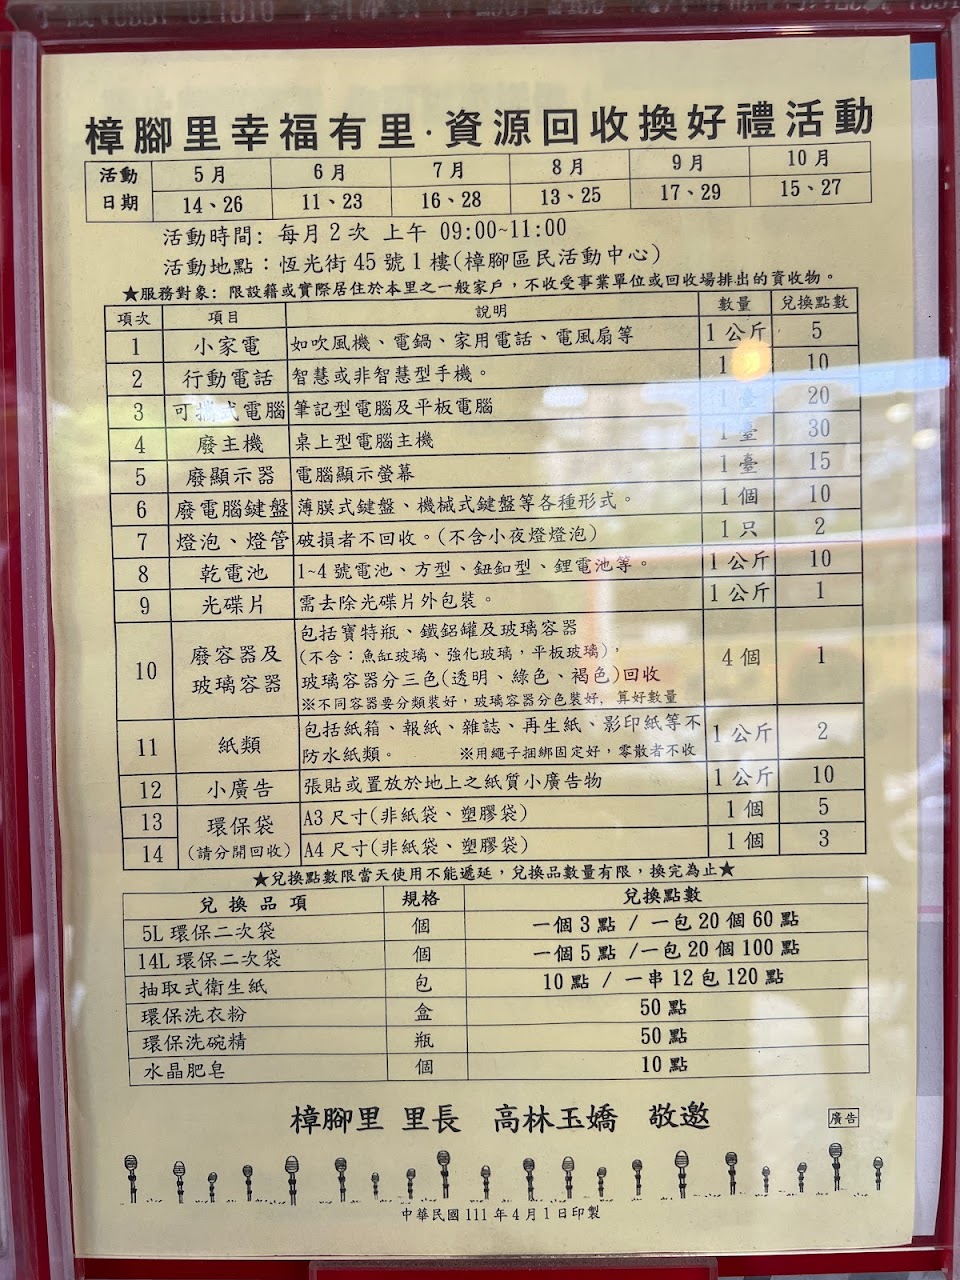 樟腳里幸福有里·資源回收換好禮活動
活動日期 5月 6月 7月 8月 9月 10月
14、26 11、23 16、28 13、25 17、29 15、27
活動時間: 每月2次 上午 09:00~11:00
活動地點:恆光街45號1樓(樟腳區民活動中心)
★服務對象: 限設籍或實際居住於本里之一般家戶,不收受事業單位或回收場排出的資收物。
項次 項目 說明 數量 兌換點數
1 小家電 如吹風機、電鍋、家用電話、電風扇等 1公斤 5
2 行動電話 智慧或非智慧型手機。 1 10
3 可攜式電腦 筆記型電腦及平板電腦 1臺 20
4 廢主機 桌上型電腦主機 1臺 30
5 廢顯示器 電腦顯示螢幕 1臺 15
6 廢電腦鍵盤 薄膜式鍵盤、機械式鍵盤等各種形式。 1個 10
7 燈泡、燈管 破損者不回收。(不含小夜燈燈泡) 1只 2
8 乾電池 1~4號電池、方型、鈕釦型、鋰電池等。 1公斤 10
9 光碟片 需去除光碟片外包裝。 1公斤 1
10 廢容器及玻璃容器 包括寶特瓶、鐵鋁罐及玻璃容器
(不含:魚缸玻璃、強化玻璃,平板玻璃),
玻璃容器分三色(透明、綠色、褐色)回收
※不同容器要分類裝好,玻璃容器分色裝好, 算好數量 4個 1
11 紙類 包括紙箱、報紙、雜誌、再生紙、影印紙等不
防水紙類。 ※用繩子捆綁固定好,零散者不收 1公斤 2
12 小廣告 張貼或置放於地上之紙質小廣告物 1公斤 10
13 環保袋 A3尺寸(非紙袋、塑膠袋) 1個 5
14 (請分開回收) A4尺寸(非紙袋、塑膠袋) 1個 3
★兌換點數限當天使用不能遞延,兌換品數量有限,換完為止★
兌換品項 規格 兌換點數
5L環保二次袋 個 一個3點 / 一包20個60點
14L環保二次袋 個 一個5點 /一包20個100點
抽取式衛生紙 包 10點 / 一串12包120點
環保洗衣粉 盒 50點
環保洗碗精 瓶 50點
水晶肥皂 個 10點
樟腳里 里長 高林玉嬌 敬邀
廣告
中華民國111年4月1日印製